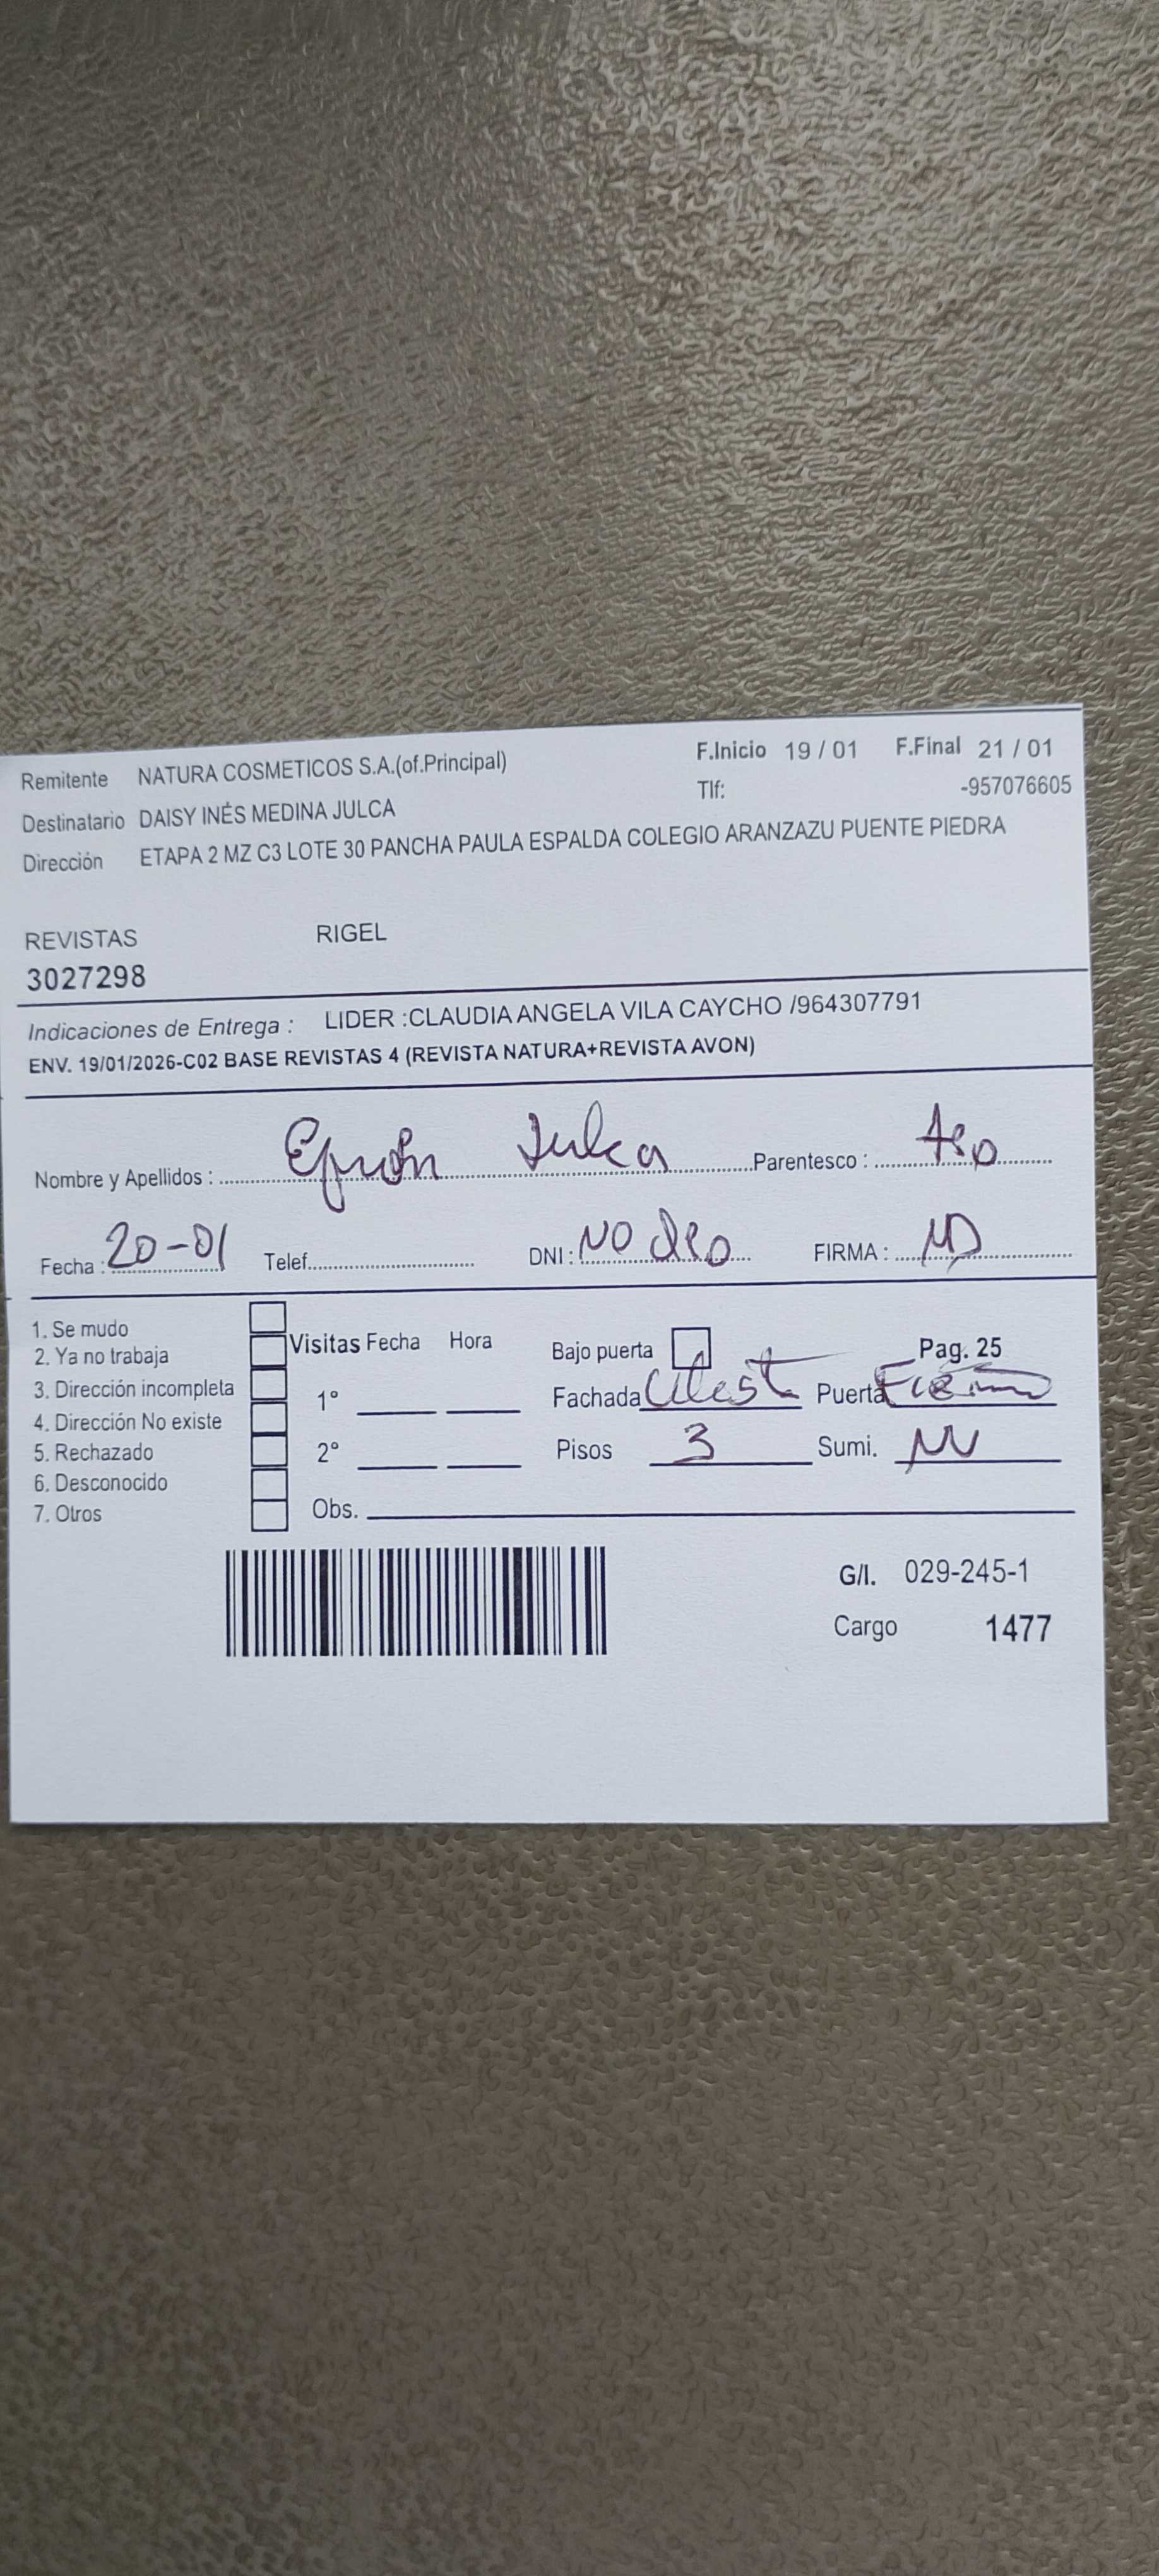 Remitente NATURA COSMETICOS S.A.(of.Principal) F.Inicio 19 / 01 F.Final 21 / 01
Destinatario DAISY INÉS MEDINA JULCA Tlf: -957076605
Dirección ETAPA 2 MZ C3 LOTE 30 PANCHA PAULA ESPALDA COLEGIO ARANZAZU PUENTE PIEDRA
REVISTAS RIGEL
3027298
Indicaciones de Entrega : LIDER :CLAUDIA ANGELA VILA CAYCHO /964307791
ENV. 19/01/2026-C02 BASE REVISTAS 4 (REVISTA NATURA+REVISTA AVON)
Nombre y Apellidos : Julca Parentesco :
Fecha : 20-01 Telef. DNI : NO dio FIRMA :
1. Se mudo
2. Ya no trabaja
3. Dirección incompleta
4. Dirección No existe
5. Rechazado
6. Desconocido
7. Otros
Visitas Fecha Hora
1°
2°
Bajo puerta Pag. 25
Fachada Celest Puerta
Pisos 3 Sumi.
Obs.
G/I. 029-245-1
Cargo 1477